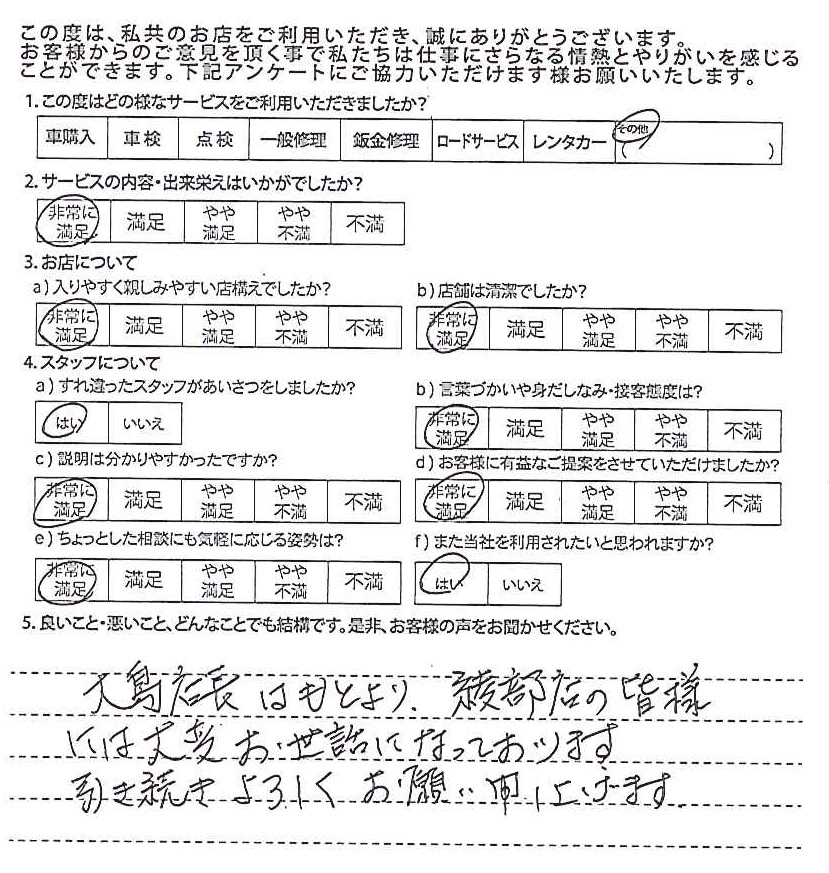 この度は、私共のお店をご利用いただき、誠にありがとうございます。
お客様からのご意見を頂く事で私たちは仕事にさらなる情熱とやりがいを感じる
ことができます。下記アンケートにご協力いただけます様お願いいたします。
1.この度はどの様なサービスをご利用いただきましたか?
車購入 車検 点検 一般修理 鈑金修理 ロードサービス レンタカー その他 ( )
2.サービスの内容・出来栄えはいかがでしたか?
非常に満足 満足 やや満足 やや不満 不満
3.お店について
a)入りやすく親しみやすい店構えでしたか? b)店舗は清潔でしたか?
非常に満足 満足 やや満足 やや不満 不満 非常に満足 満足 やや満足 やや不満 不満
4.スタッフについて
a)すれ違ったスタッフがあいさつをしましたか? b)言葉づかいや身だしなみ・接客態度は?
はい いいえ 非常に満足 満足 やや満足 やや不満 不満
c)説明は分かりやすかったですか? d)お客様に有益なご提案をさせていただけましたか?
非常に満足 満足 やや満足 やや不満 不満 非常に満足 満足 やや満足 やや不満 不満
e)ちょっとした相談にも気軽に応じる姿勢は? f)また当社を利用されたいと思われますか?
非常に満足 満足 やや満足 やや不満 不満 はい いいえ
5.良いこと・悪いこと、どんなことでも結構です。是非、お客様の声をお聞かせください。
大島店長はもとより、綾部店の皆様
には大変お世話になっております
引き続きよろしくお願い申し上げます。